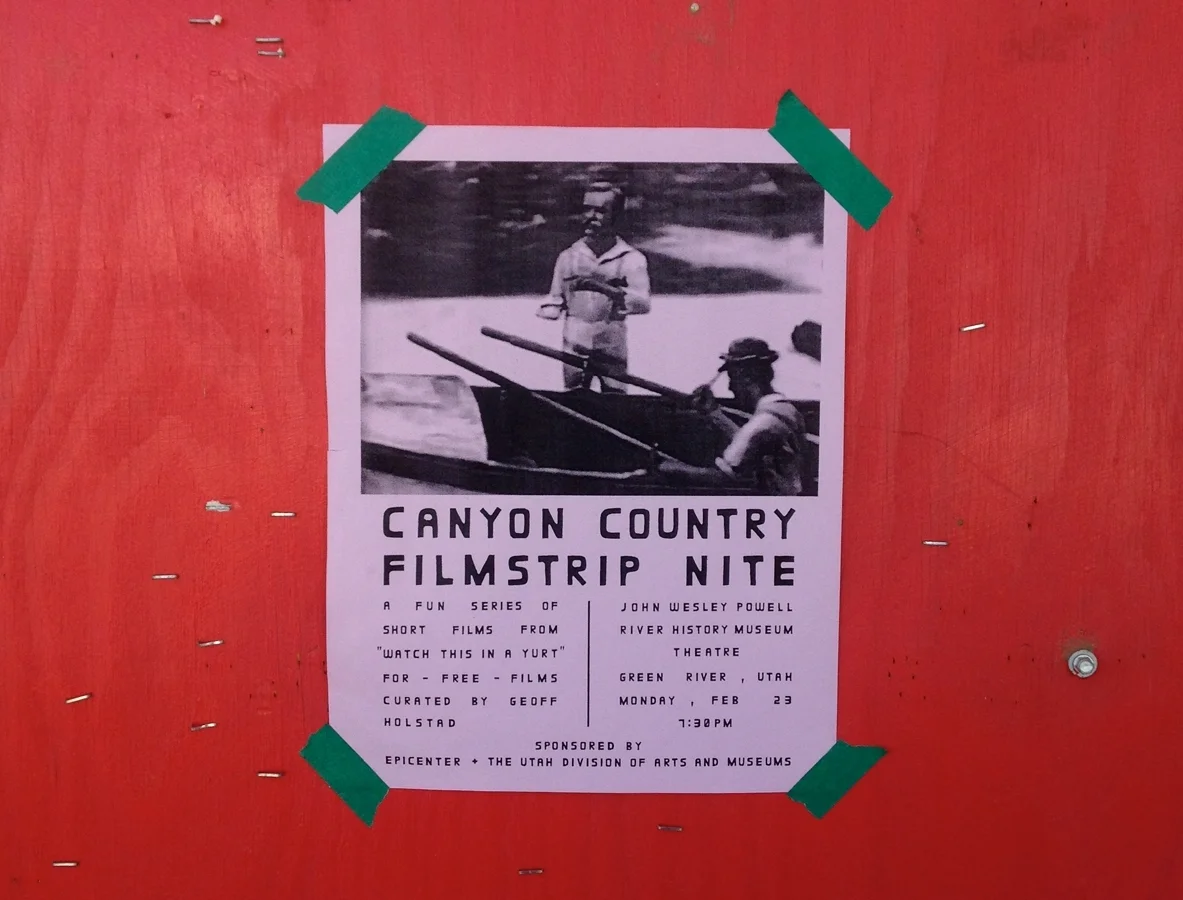 CANYON COUNTRY
FILMSTRIP NITE
A FUN SERIES OF
SHORT FILMS FROM
"WATCH THIS IN A YURT"
FOR - FREE - FILMS
CURATED BY GEOFF
HOLSTAD
JOHN WESLEY POWELL
RIVER HISTORY MUSEUM
THEATRE
GREEN RIVER , UTAH
MONDAY , FEB 23
7:30PM
SPONSORED BY
EPICENTER + THE UTAH DIVISION OF ARTS AND MUSEUMS